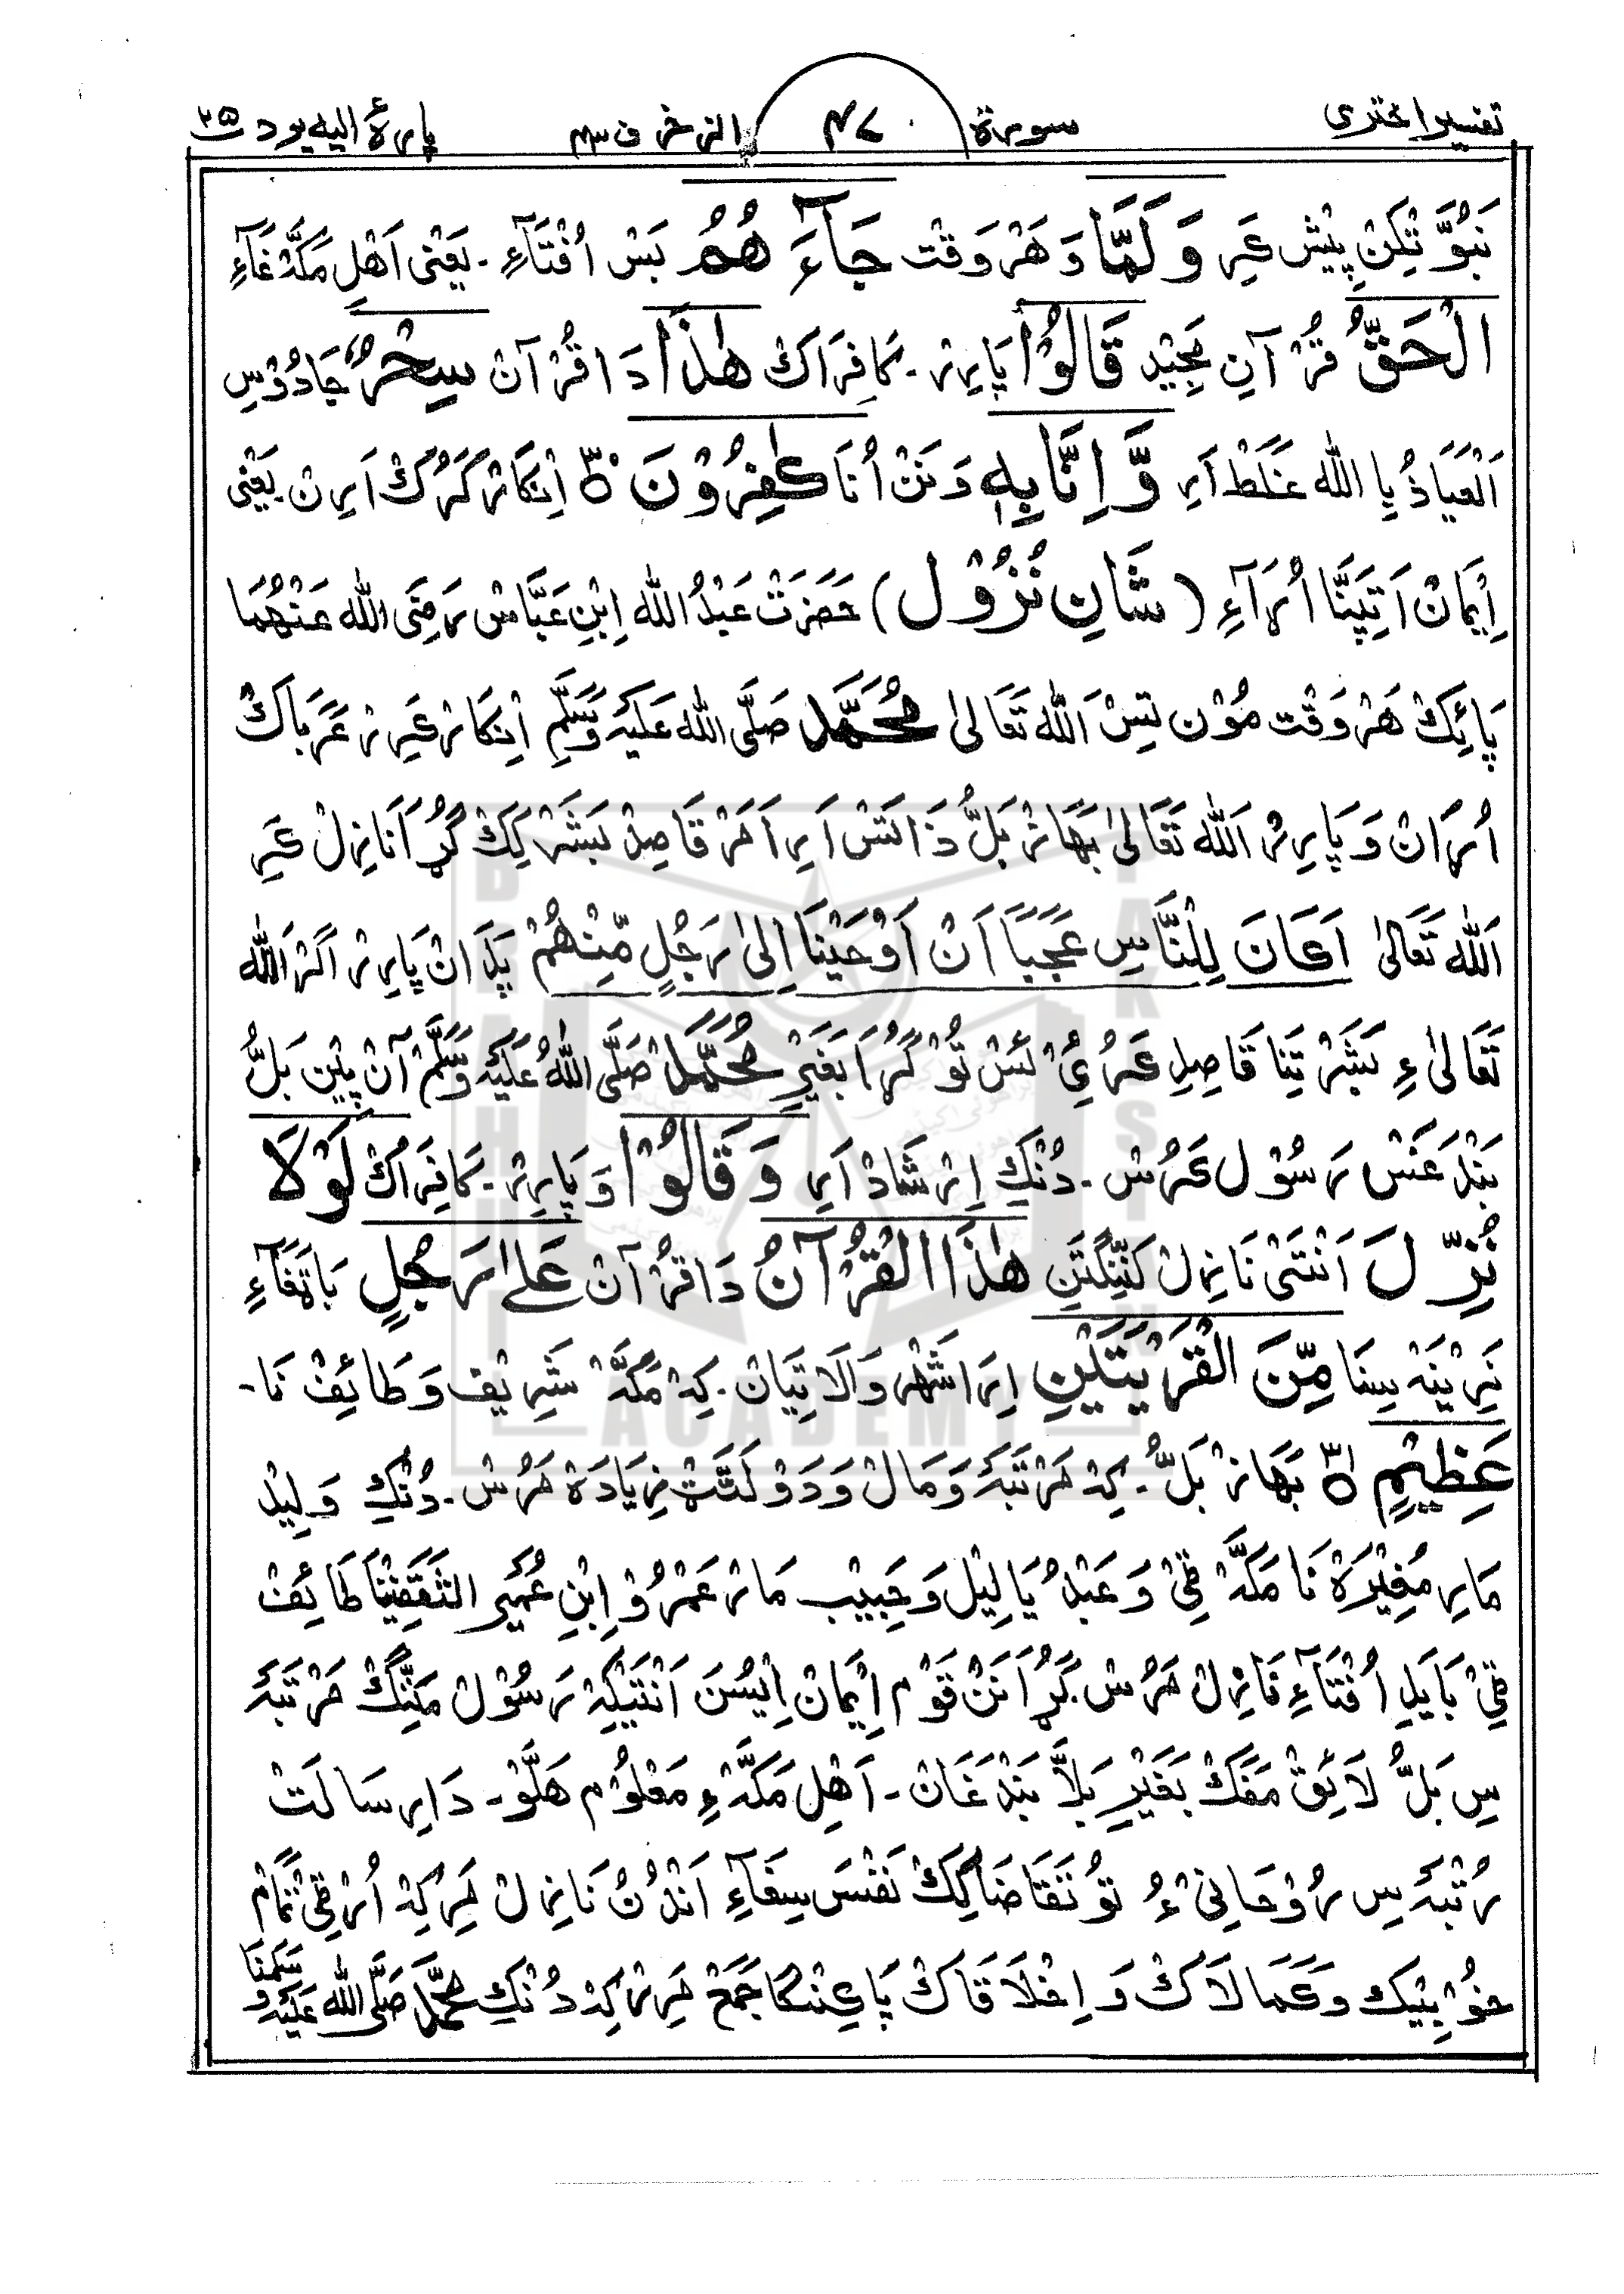 تفسیر اختری سورۃ ۴۷ الزخرف ۴۳ پارۂ الیہ یرد ۲۵
نَبُوَّ تِکِنْ پِیْش عَرِ وَلَمَّا وَ ھَرْ وَقْت جَآءَ ھُمُ بَسْ اُفْتَآءِ ۔ یَعْنٰی اَھْلِ مَکَّہْ غَآءِ
الْحَقُّ قُرْآنِ مَجِیْد قَالُوْا پَارِرْ ۔ کَافِرَاکْ ھٰذَا دَا قُرْآنْ سِحْرٌ جَادُوْسِ
اَلْعَیَاذُ بِا اللّٰہ غَلَطْ اَرِ وَّ اِنَّا بِہٖ وَ نَنْ اُنَا کٰفِرُوْنَ اِنْکَارْ کَرُکْ اَرِنْ ۔ یَعْنٰی
اِیْمَانْ اَتِپَنَّا اُرَآءِ (شَانِ نُزُوْل) حَضْرَتْ عَبْدُ اللّٰہ اِبْنِ عَبَّاسْ رَضِیَ اللّٰہ عَنْھُمَا
پَائِکْ ھَرْ وَقْت مُوْن تِسْ اَللّٰہ تَعَالیٰ مُحَمَّدْ صَلَّی اللّٰہ عَلَیْہِ وَسَلَّمِ اِنْکَارْ عَرِرْ عَرَبَاکْ
اُرَانْ وَ پَارِرْ اَللّٰہ تَعَالیٰ بَھَازْ بَلُّ ذَاتَسْ اَرِ اَمَرْ قَاصِدْ بَشَرْ لِکْ کُرُ اَنَازِلْ عَرِ
اَللّٰہ تَعَالیٰ اَکَانَ لِلنَّاسِ عَجَبًا اَنْ اَوْحَیْنَا اِلیٰ رَجُلٍ مِّنْھُمْ پَدَانْ پَارِرْ اَگَرْ اَللّٰہ
تَعَالیٰ ءِ بَشَرْ تِنَا قَاصِدِ عَرُئِیْ ئَسْ تُوْ گُرُا بَغَیْرِ مُحَمَّدْ صَلَّی اللّٰہُ عَلَیْہِ وَسَلَّمْ آنْ پِیْن بَلُّ
بَنْدَغَسْ رَسُوْل عَرُسْ ۔ دُنْکِ اِرْشَادْ اَرِ وَقَالُوْا وَ پَارِرْ ۔ کَافِرَاکْ لَوْ لَا
نُزِّلَ اَنْتَئَی نَازِلْ کَنِّنْگَتَنِ ھٰذَا الْقُرْآنُ دَا قُرْآنْ عَلٰے رَجُلٍ بَاتْغَآءِ
نَرِیْنَہْ سِنَا مِّنَ الْقَرْیَتَیْنِ اِرَا شَھْر وَالَاتِیَانْ ۔ کِہْ مَکَّہْ شَرِیْف وَ طَائِفْ نَا۔
عَظِیْمٍ بَھَازْ بَلُّ ۔ کِہْ مَرْتَبَہْ وَ مَالْ وَ دَوْلَتَّتْ زِیَادَہْ مَرُسْ ۔ دُنْکِ وَلِیْد
مَارِ مُغِیْرَہْ نَا مَکَّہْ ٹِیْ وَ عَبْدُ یَالِیْل وَ حَبِیْب مَارْ عَمْرُوْ اِبْنِ عُمَیْر الثَّقَفِیْنَا طَائِفْ
ٹِیْ بَابَلِ اُفْتَآءِ نَازِلْ مَرُسْ گُرُا نَنْ قَوْم اِیْمَانْ اِیْسُنَ اَنْتَیْکِہْ رَسُوْل مَنِّنْگْ مَرْتَبَہْ
سِ بَلُّ لَائِقْ مَفَکْ بَغَیْرِ بَلَّا بَنْدَغَانْ ۔ اَھْلِ مَکَّہْ ءِ مَعْلُوْم ھَلَّوْ ۔ دَا رِسَالَتْ
رُتْبَہْ سِ رُوْحَانِیْ ءُ تُوْ تَقَاضَا کِکْ نَفْسَ سِغَآءِ اَنْدُنْ نَازِلْ مَرِ کِہْ اُرْ ٹِیْ تَمَامْ
خُوْبِیْک وَ کَمَالَاکْ وَ اِخْلَاقَاکْ پَاکِنْکَا جَمَعْ مَرِرْ کِہْ دُنْکِ مُحَمَّدْ صَلَّی اللّٰہ عَلَیْہِ وَ